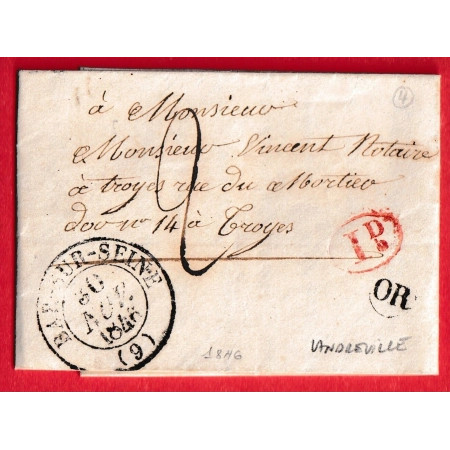 4
à Monsieur
Monsieur Vincent Notaire
à troyes rue du Mortier
dor nº 14 à Troyes
2
1 D
OR
BAR-SUR-SEINE
30
NOV.
1846
(9)
1846
VANDREVILLE